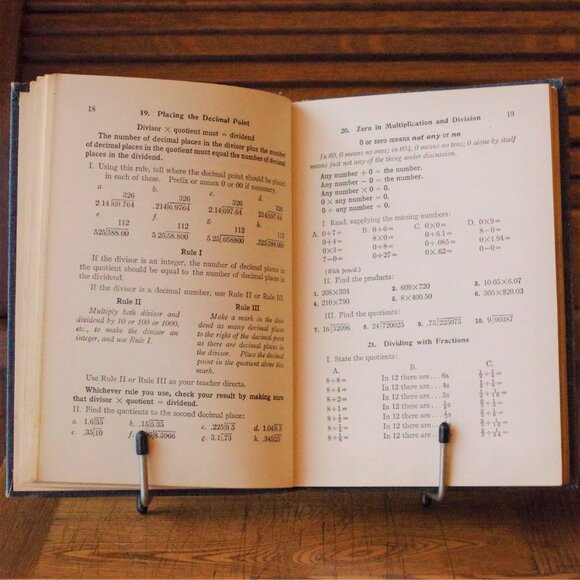 18
19. Placing the Decimal Point
Divisor × quotient must = dividend
The number of decimal places in the divisor plus the number
of decimal places in the quotient must equal the number of decimal
places in the dividend.
I. Using this rule, tell where the decimal point should be placed
in each of these. Prefix or annex 0 or 00 if necessary.
a b. c. d.
326 326 326 326
2.14)69.764 .214)6.9764 2.14)697.64 214)697.64
e. f. g. h.
112 112 112 112
.525)588.00 5.25)58.800 5.25).058800 .525).588.00
Rule I
If the divisor is an integer, the number of decimal places in
the quotient should be equal to the number of decimal places in
the dividend.
If the divisor is a decimal number, use Rule II or Rule III.
Rule II
Multiply both divisor and
dividend by 10 or 100 or 1000,
etc., to make the divisor an
integer, and use Rule I.
Rule III
Make a mark in the divi-
dend as many decimal places
to the right of the decimal point
as there are decimal places in
the divisor. Place the decimal
point in the quotient above this
mark.
Use Rule II or Rule III as your teacher directs.
Whichever rule you use, check your result by making sure
that divisor × quotient = dividend.
II. Find the quotients to the second decimal place:
a. 1.6)35 b. .15)5.35 c. .225)9.5 d. 1.04)6.5
e. .35)10 f. 8.5966 g. 3.1).73 h. .345)25
19
20. Zero in Multiplication and Division
0 or zero means not any or no
In 60, 0 means no ones; in 604, 0 means no tens; 0 alone by itself
means just not any of the thing under discussion.
Any number + 0 = the number.
Any number − 0 = the number.
Any number × 0 = 0.
0 × any number = 0.
0 ÷ any number = 0.
I. Read, supplying the missing numbers:
A. 0+7= B. 0+6= C. 0×0= D. 0×9=
0+4= 8×0= 0+6.1= 0−8=
0×3= 0÷8= 0÷.085= 0×1.94=
7−0= 0+27= 0×.62= 0−0=
(With pencil.)
II. Find the products:
1. 208×304 2. 609×720 3. 10.05×6.07
4. 210×790 5. 8×400.50 6. 305×820.03
III. Find the quotients:
7. 16)32096 8. 24)720025 9. .75)225075 10. 9)90387
21. Dividing with Fractions
I. State the quotients:
A. B. C.
8÷8= In 12 there are . . . 6s
8÷4= In 12 there are . . . 4s
8÷2= In 12 there are . . . 3s
8÷1= In 12 there are
In 12 there are
In 12 there are
In 12 there are